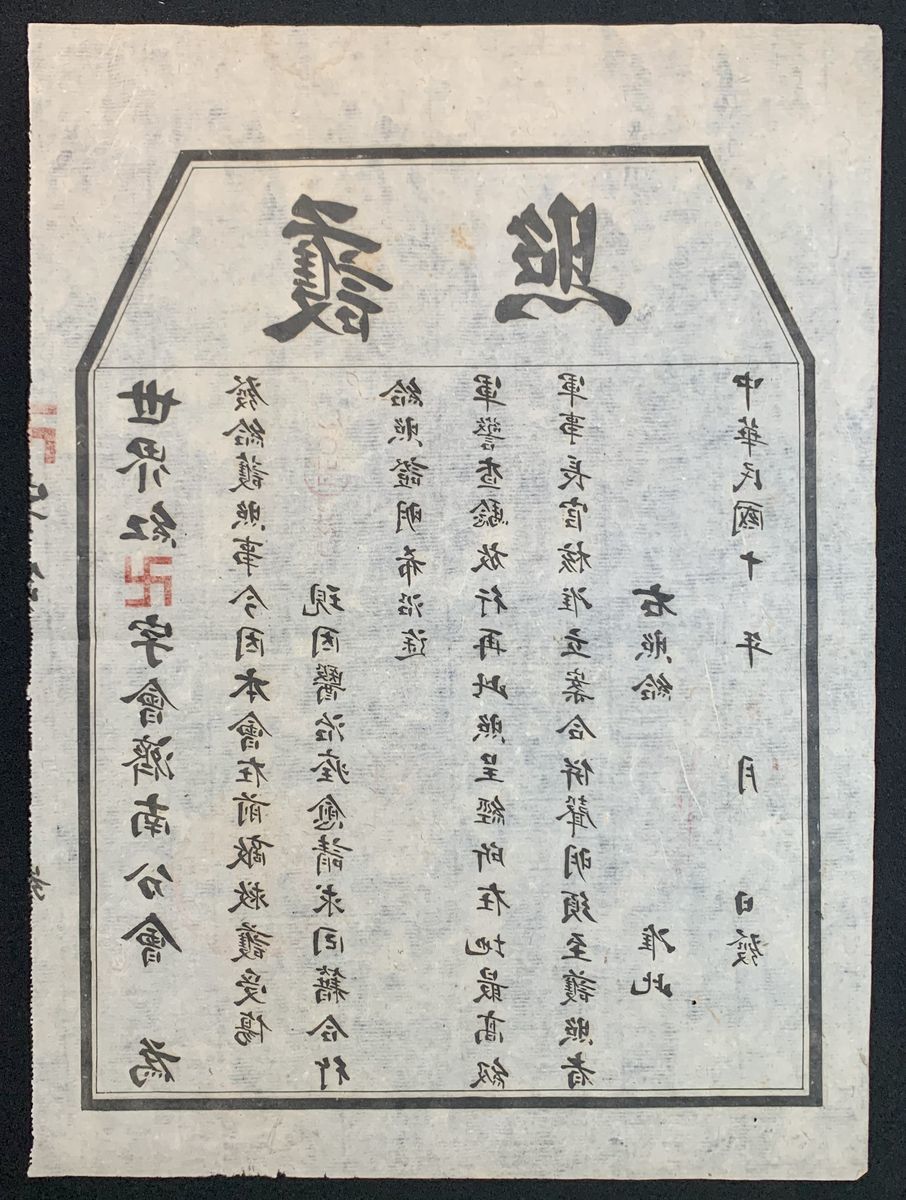 護照
世界紅卍字會濟南分會 為
發給護照事今因本會在前敵救護受傷
現因醫治痊愈請求囘籍合行
給照證明希沿途
軍警查驗放行再此照呈經所在地最高級
軍事長官核准立案合併聲明須至護照者
右照給 准此
中華民國十 年 月 日發